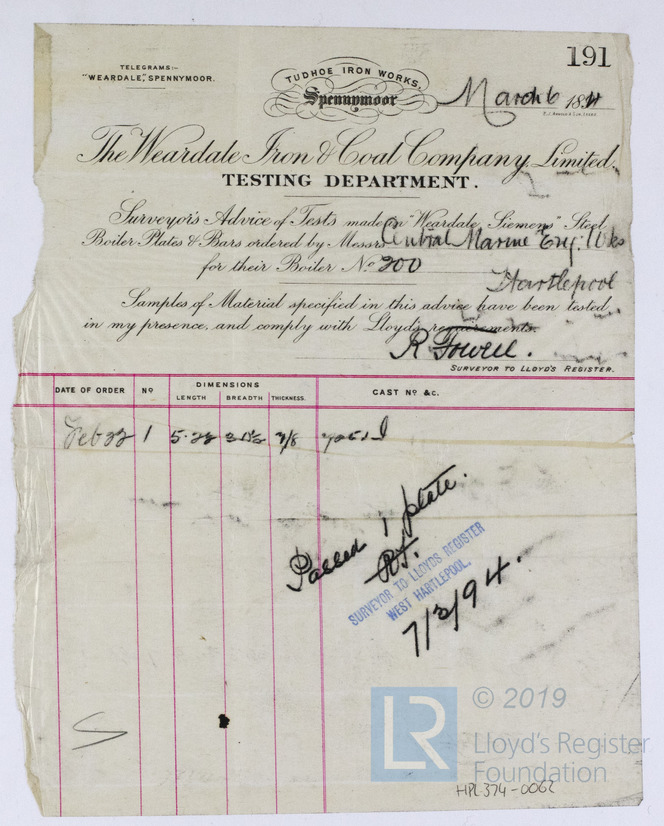 191
TELEGRAMS:-
"WEARDALE," SPENNYMOOR.
TUDHOE IRON WORKS,
Spennymoor
March 6 1894
The Weardale Iron & Coal Company, Limited.
TESTING DEPARTMENT.
Surveyor's Advice of Tests made on "Weardale Siemens" Steel
Boiler Plates & Bars ordered by Messrs Central Marine Eng: Wks
for their Boiler No 200 Hartlepool
Samples of Material specified in this advice have been tested
in my presence, and comply with Lloyd's requirements.
R Towell.
SURVEYOR TO LLOYD'S REGISTER.
DATE OF ORDER No DIMENSIONS CAST No &c.
LENGTH BREADTH THICKNESS.
Feb 22 1 7/8
Passed 1 plate.
RT.
SURVEYOR TO LLOYDS REGISTER
WEST HARTLEPOOL.
7/3/94.
LR
© 2019
Lloyd's Register
Foundation
HPL374-0062